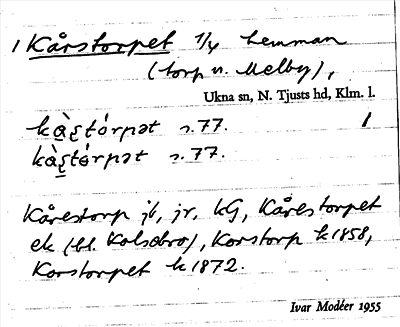 1 Kårstorpet 1/4 hemman
(torp u. Melby),
Ukna sn, N. Tjusts hd, Klm. l.
kà̱ʂtórpət s. 77. 1
kà̱ʂtórpət s. 77.
Kårestorp jb, jr, kG, Kårestorpet
ek (bl. Kolsebro), Korstorp k 1858,
Korstorpet k 1872.
Ivar Modéer 1955